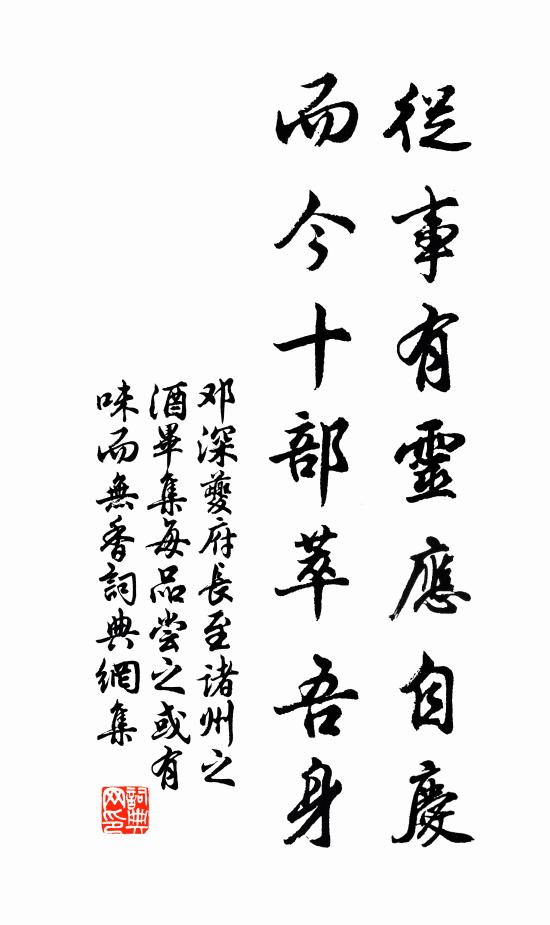 從事有靈應自慶
而今十部萃吾身
邓深夔府長至諸州之
酒畢集每品尝之或有
味而無香詞典網集
詞典网印